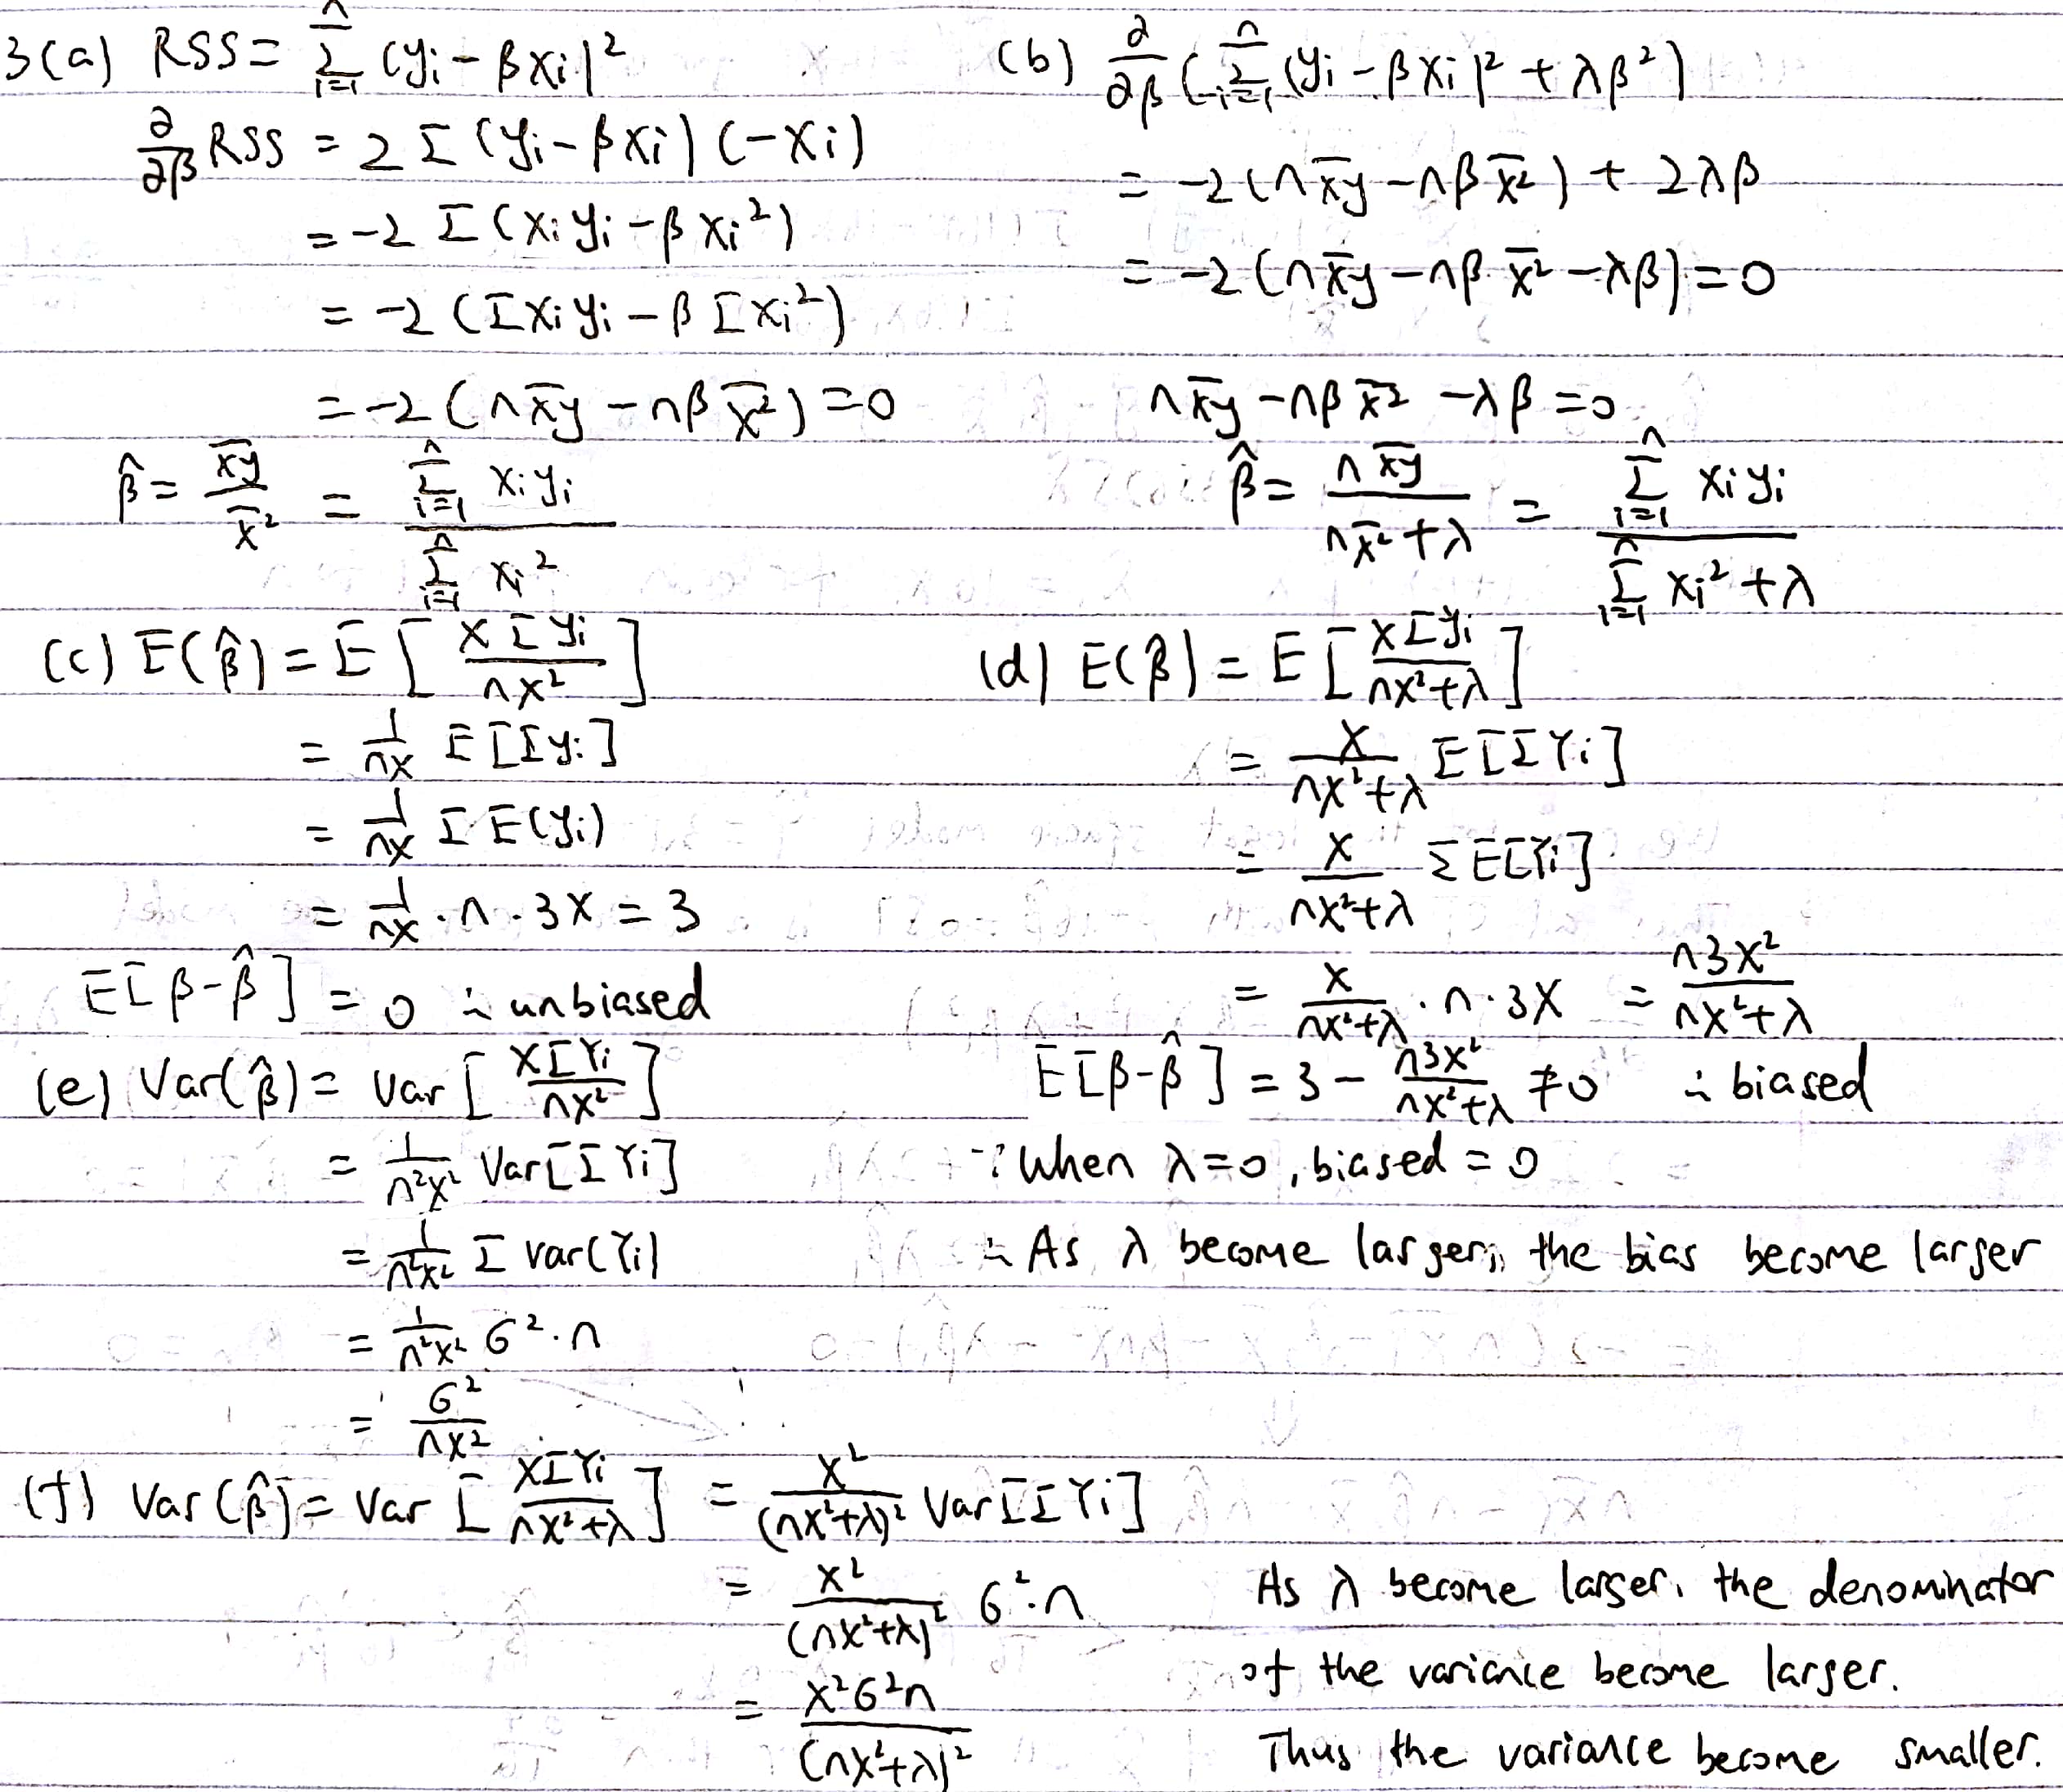 3(a) RSS = Σ_{i=1}^{n} (yi - βxi)²
∂/∂β RSS = 2 Σ (yi - βxi) (-xi)
= -2 Σ (xi yi - β xi²)
= -2 (Σ xi yi - β Σ xi²)
= -2 (n x̅y̅ - nβ x̅²) = 0
β̂ = x̅y̅ / x̅² = Σ_{i=1}^{n} xi yi / Σ_{i=1}^{n} xi²
(b) ∂/∂β (Σ_{i=1}^{n} (yi - βxi)² + λβ²)
= -2 (n x̅y̅ - nβ x̅²) + 2λβ
= -2 (n x̅y̅ - nβ x̅² - λβ) = 0
n x̅y̅ - nβ x̅² - λβ = 0
β̂ = n x̅y̅ / (n x̅² + λ) = Σ_{i=1}^{n} xi yi / (Σ_{i=1}^{n} xi² + λ)
(c) E(β̂) = E [ x Σ yi / nx² ]
= 1/nx E [Σ yi]
= 1/nx Σ E(yi)
= 1/nx · n · 3x = 3
E[β - β̂] = 0 ∴ unbiased
(d) E(β̂) = E [ x Σ yi / (nx² + λ) ]
= x/(nx² + λ) E [Σ Yi]
= x/(nx² + λ) Σ E[Yi]
= x/(nx² + λ) · n · 3x = n3x²/(nx² + λ)
E[β - β̂] = 3 - n3x²/(nx² + λ) ≠ 0 ∴ biased
∵ When λ = 0, biased = 0
∴ As λ become larger, the bias become larger
(e) Var(β̂) = Var [ x Σ Yi / nx² ]
= 1/n²x² Var [Σ Yi]
= 1/n²x² Σ Var(Yi)
= 1/n²x² σ² · n
= σ²/nx²
(f) Var(β̂) = Var [ x Σ Yi / (nx² + λ) ] = x²/(nx² + λ)² Var [Σ Yi]
= x²/(nx² + λ)² σ² · n
= x²σ²n/(nx² + λ)²
As λ become larger, the denominator
of the variance become larger.
Thus the variance become smaller.